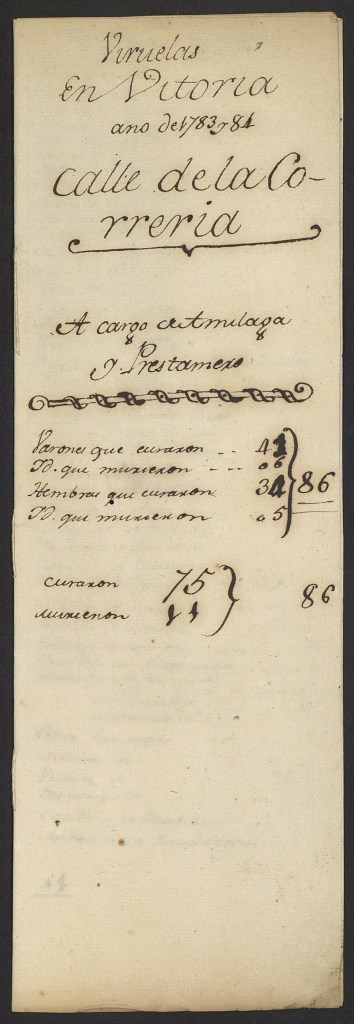 Viruelas
En Vitoria
ano de 1783 y 84
Calle de la Co-
rreria
A cargo de Amilaga
y Prestamero
Varones que curaron .. 41
Yd. que murieron ... 06
Hembras que curaron 34 86
Yd. que murieron 05
curaron 75 86
murieron 11